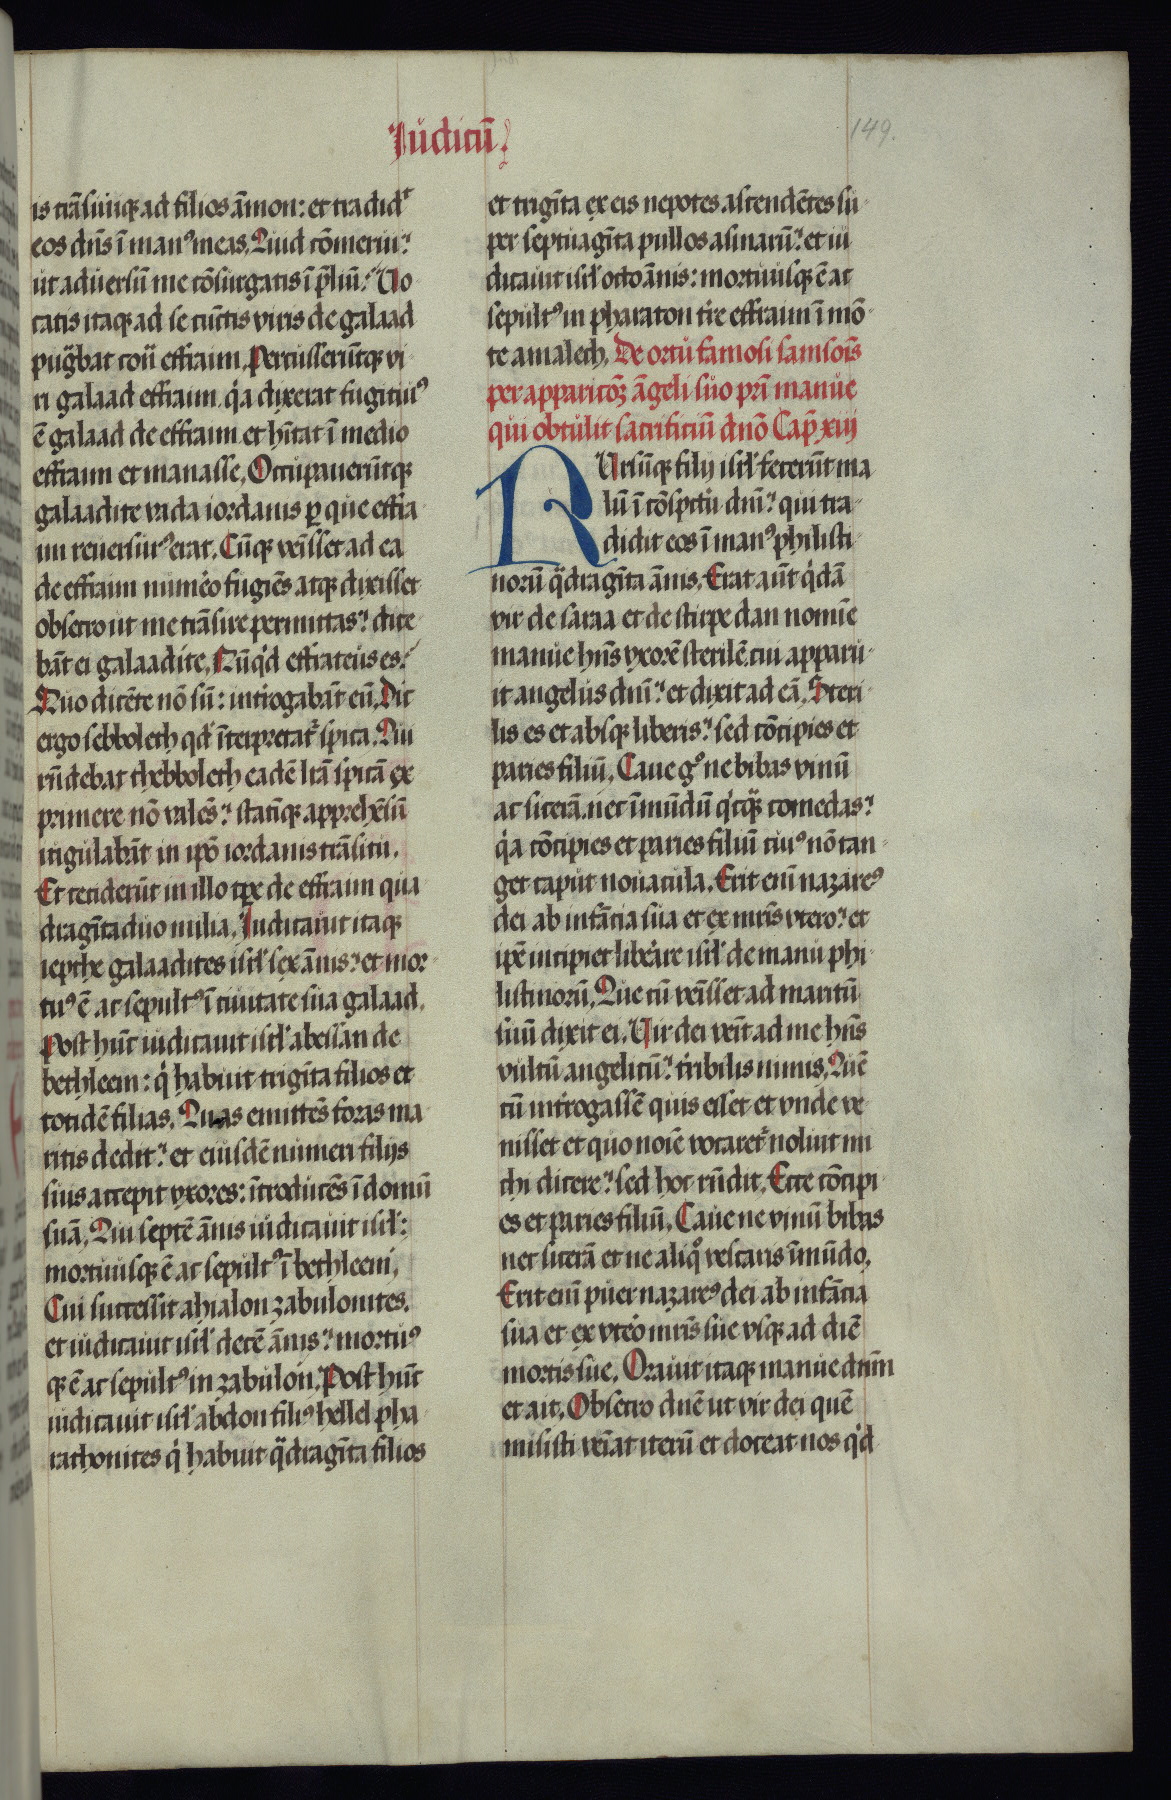 Judicū
149.
is trāsiuiq; ad filios āmon: et tradidt
eos dn̄s ī manꝰ meas. Quid cōmerui?
ut aduersū me cōsurgatis ī p̄liū? Uo
catis itaq; ad se cūctis viris de galaad
pugͣbat cont̄ effraim. Percusserūtq; vi
ri galaad effraim. qͥa dixerat fugitiuꝰ
ē galaad de effraim et hītat ī medio
effraim et manasse. Occupauerūtq;
galaadite vada iordanis ꝑ que effra
im reuersurꝰ erat. Cūq; venīsset ad ea
de effraim numeo fugiēs atq; dixisset
obsecro ut me trāsire permittas? dice
bāt ei galaadite. Nūqͥd effrateus es?
Quo dicēte nō sū: introgabāt eū. Dic
ergo sebboleth qd̓ īterpretat᷑ spica. Qui
rn̄debat thebboleth eadē lr̄a spicā ex
primere nō valēs? statīq; apprehēsū
iugulabāt in ip̄o iordanis trāsitu.
Et ceciderūt in illo tp̄e de effraim qua
dragīta duo milia. Judicauit itaq;
iepthe galaadites isrl̓ sex ānis? et mor
tuꝰ ē ac sepultꝰ ī ciuitate sua galaad.
Post hūc iudicauit isrl̓ abessan de
bethleem: qͥ habuit trigīta filios et
totidē filias. Quas emittēs foras ma
ritis dedit? et eiusdē numeri filijs
suis accepit vxores: ītroducēs ī domū
suā. Qui septē ānis iudicauit isrl̓:
mortuusq; ē ac sepultꝰ ī bethleem.
Cui successit ahialon zabulonites.
et iudicauit isrl̓ decē ānis? mortuꝰ
q; ē ac sepultꝰ in zabulon. Post hūc
iudicauit isrl̓ abdon filiꝰ hellel pha
rathonites qͥ habuit qͣdragīta filios
et trigīta ex eis nepotes. ascendētes su
per septuagīta pullos asinarū? et iu
dicauit isrl̓ octo ānis: mortuusq; ē ac
sepultꝰ in pharaton tr̄e effraim ī mō
te amalech. De ortu famosi samsoīs
per apparicōꝫ āgeli suo pr̄i manue
qui obtulit sacrificiū dn̄o Cap̄ xiij
RUrsūq; filij isrl̓ fecerūt ma
lū ī cōspectu dn̄i? qui tra
didit eos ī manꝰ philisti
norū qͣdragīta ānis. Erat aūt qͥdā
vir de saraa et de stirpe dan nomīe
manue hn̄s vxorē sterilē. cui apparu
it angelus dn̄i? et dixit ad eā. Steri
lis es et absq; liberis? sed cōcipies et
paries filiū. Caue gͦ ne bibas vinū
ac sicerā. nec īmūdū qͥcqͣ comedas?
qͥa cōcipies et paries filiū cuiꝰ nō tan
get caput nouacula. Erit eni᷑ nazareꝰ
dei ab infācia sua et ex mr̄is vtero? et
ip̄e incipiet libẽare isrl̓ de manu phi
listinorū. Que cū venīsset ad maritū
suū dixit ei. Uir dei veīt ad me hn̄s
vultū angelicū? tr̄ibilis nimis. Quē
cū introgassē quis esset et vnde ve
nisset et quo noīe vocaret᷑ noluit mi
chi dicere? sed hoc rn̄dit. Ecce cōcipi
es et paries filiū. Caue ne vinū bibas
nec sicerā et ne aliqͦ vescaris īmūdo.
Erit eni᷑ puer nazareꝰ dei ab infācia
sua et ex vteo mr̄is sue vsq; ad diē
mortis sue. Orauit itaq; manue dn̄m
et ait. Obsecro dn̄e ut vir dei quē
misisti veīat iterū et doceat nos qͥd